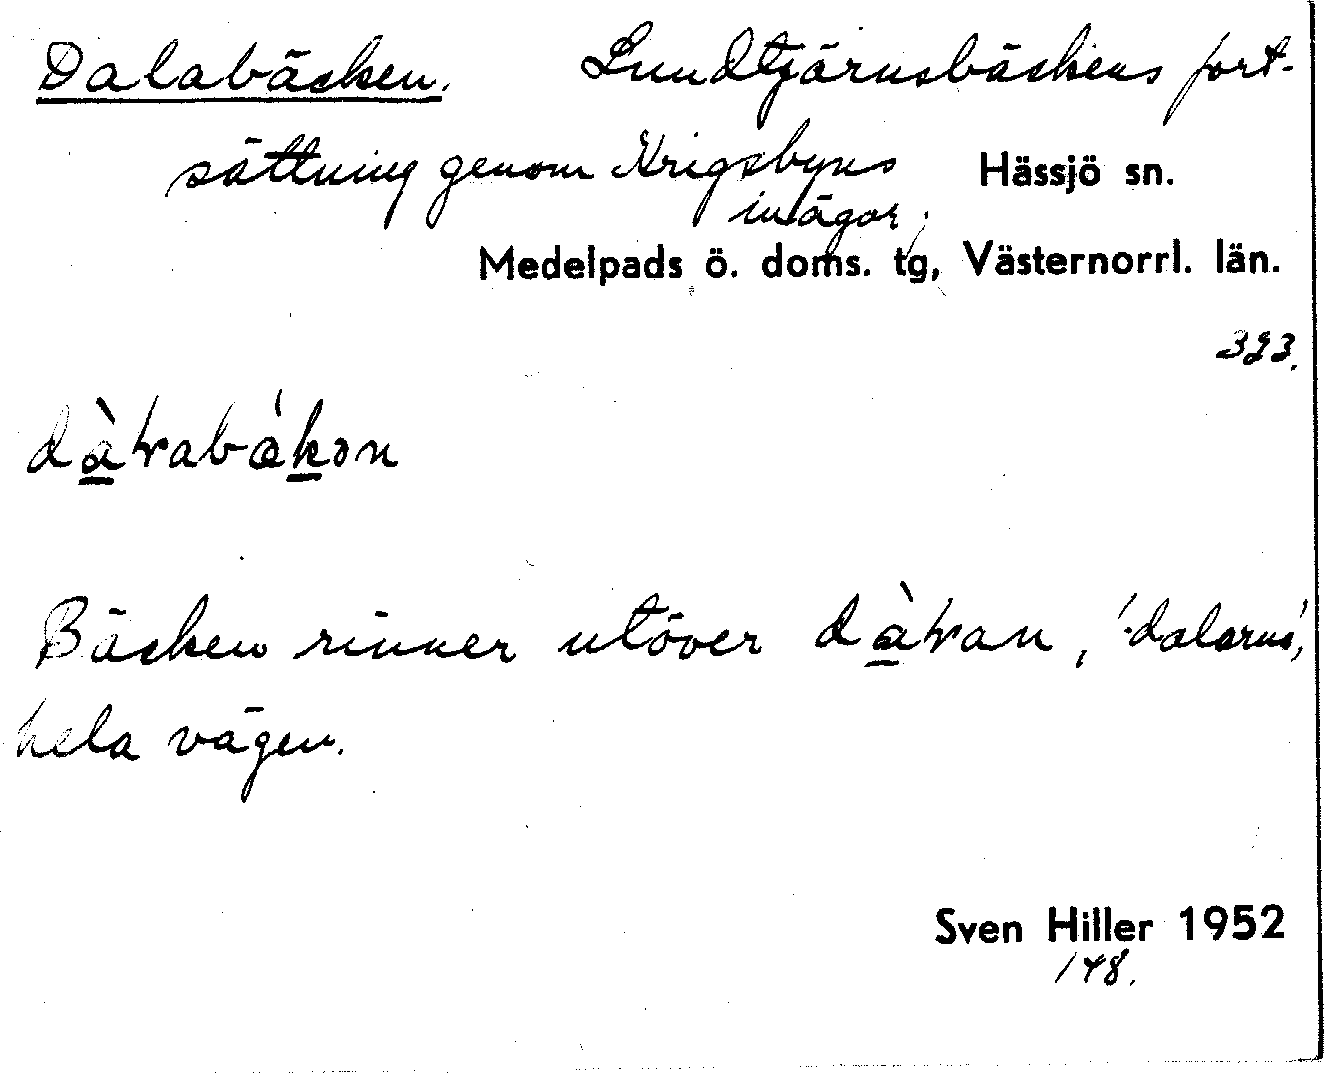 Dalabäcken. Lundtjärnsbäckens fort-
sättning genom Krigsbyns Hässjö sn.
inägor.
Medelpads ö. doms. tg, Västernorrl. län.
323.
Bäcken rinner utöver , 'dalarna',
hela vägen.
Sven Hiller 1952
148.